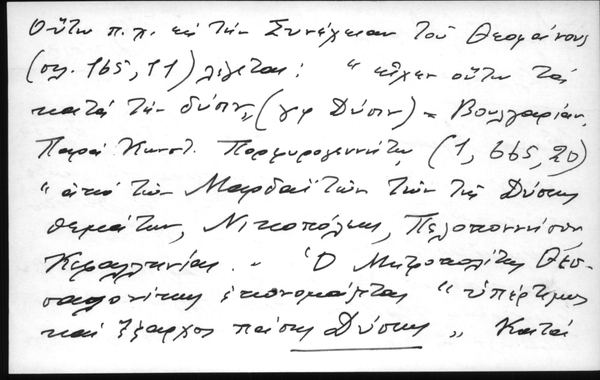 Οὕτω π.χ. εἰς τὴν Συνέχειαν τοῦ Θεοφάνους
(σελ. 165, 11) λέγεται: " εἶχεν οὕτω τὰ
κατὰ τὴν δύσιν „ (γρ Δύσιν) = Βουλγαρίαν.
Παρὰ Κωνστ. Πορφυρογεννήτῳ (1, 665, 20)
" ἀπὸ τῶν Μαρδαϊτῶν τῶν τῆς Δύσεως
θεμάτων, Νικοπόλεως, Πελοποννήσου
Κεφαλληνίας. „ Ὁ Μητροπολίτης Θεσ-
σαλονίκης ἐπονομάζεται " ὑπέρτιμος
καὶ ἔξαρχος πάσης Δύσεως „ Κατὰ